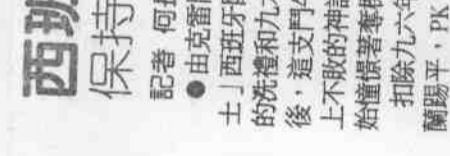 西班
保持
記者 何
●由克雷
土」西班牙
的洗禮和九
後，這支鬥牛
上不敗的神話
始憧憬著奪
扣除九六年
蘭踢平，PK